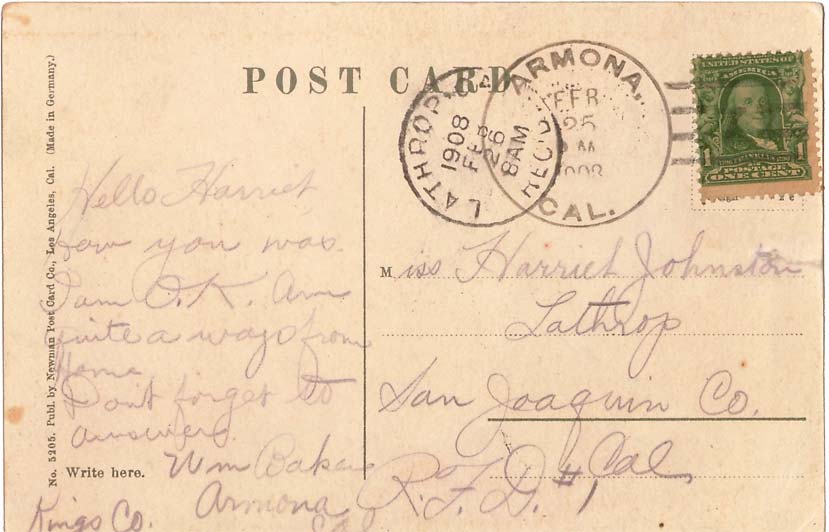 POST CARD
No. 5205. Publ. by Newman Post Card Co., Los Angeles, Cal. (Made in Germany.)
LATHROP, CA
1908
FEB
26
8AM
REC'D
ARMONA,
FEB
25
M
1908
CAL.
UNITED STATES OF
AMERICA
1
POSTAGE
ONE CENT
Hello Harriet
how you was.
I am O.K. Am
quite a ways from
Home
Dont forget to
answere.
Wm Baker
Armona
Kings Co.
Cal
Write here.
Miss Harriet Johnston
Lathrop
San Joaquin Co.
Cal
R.F.D. #1